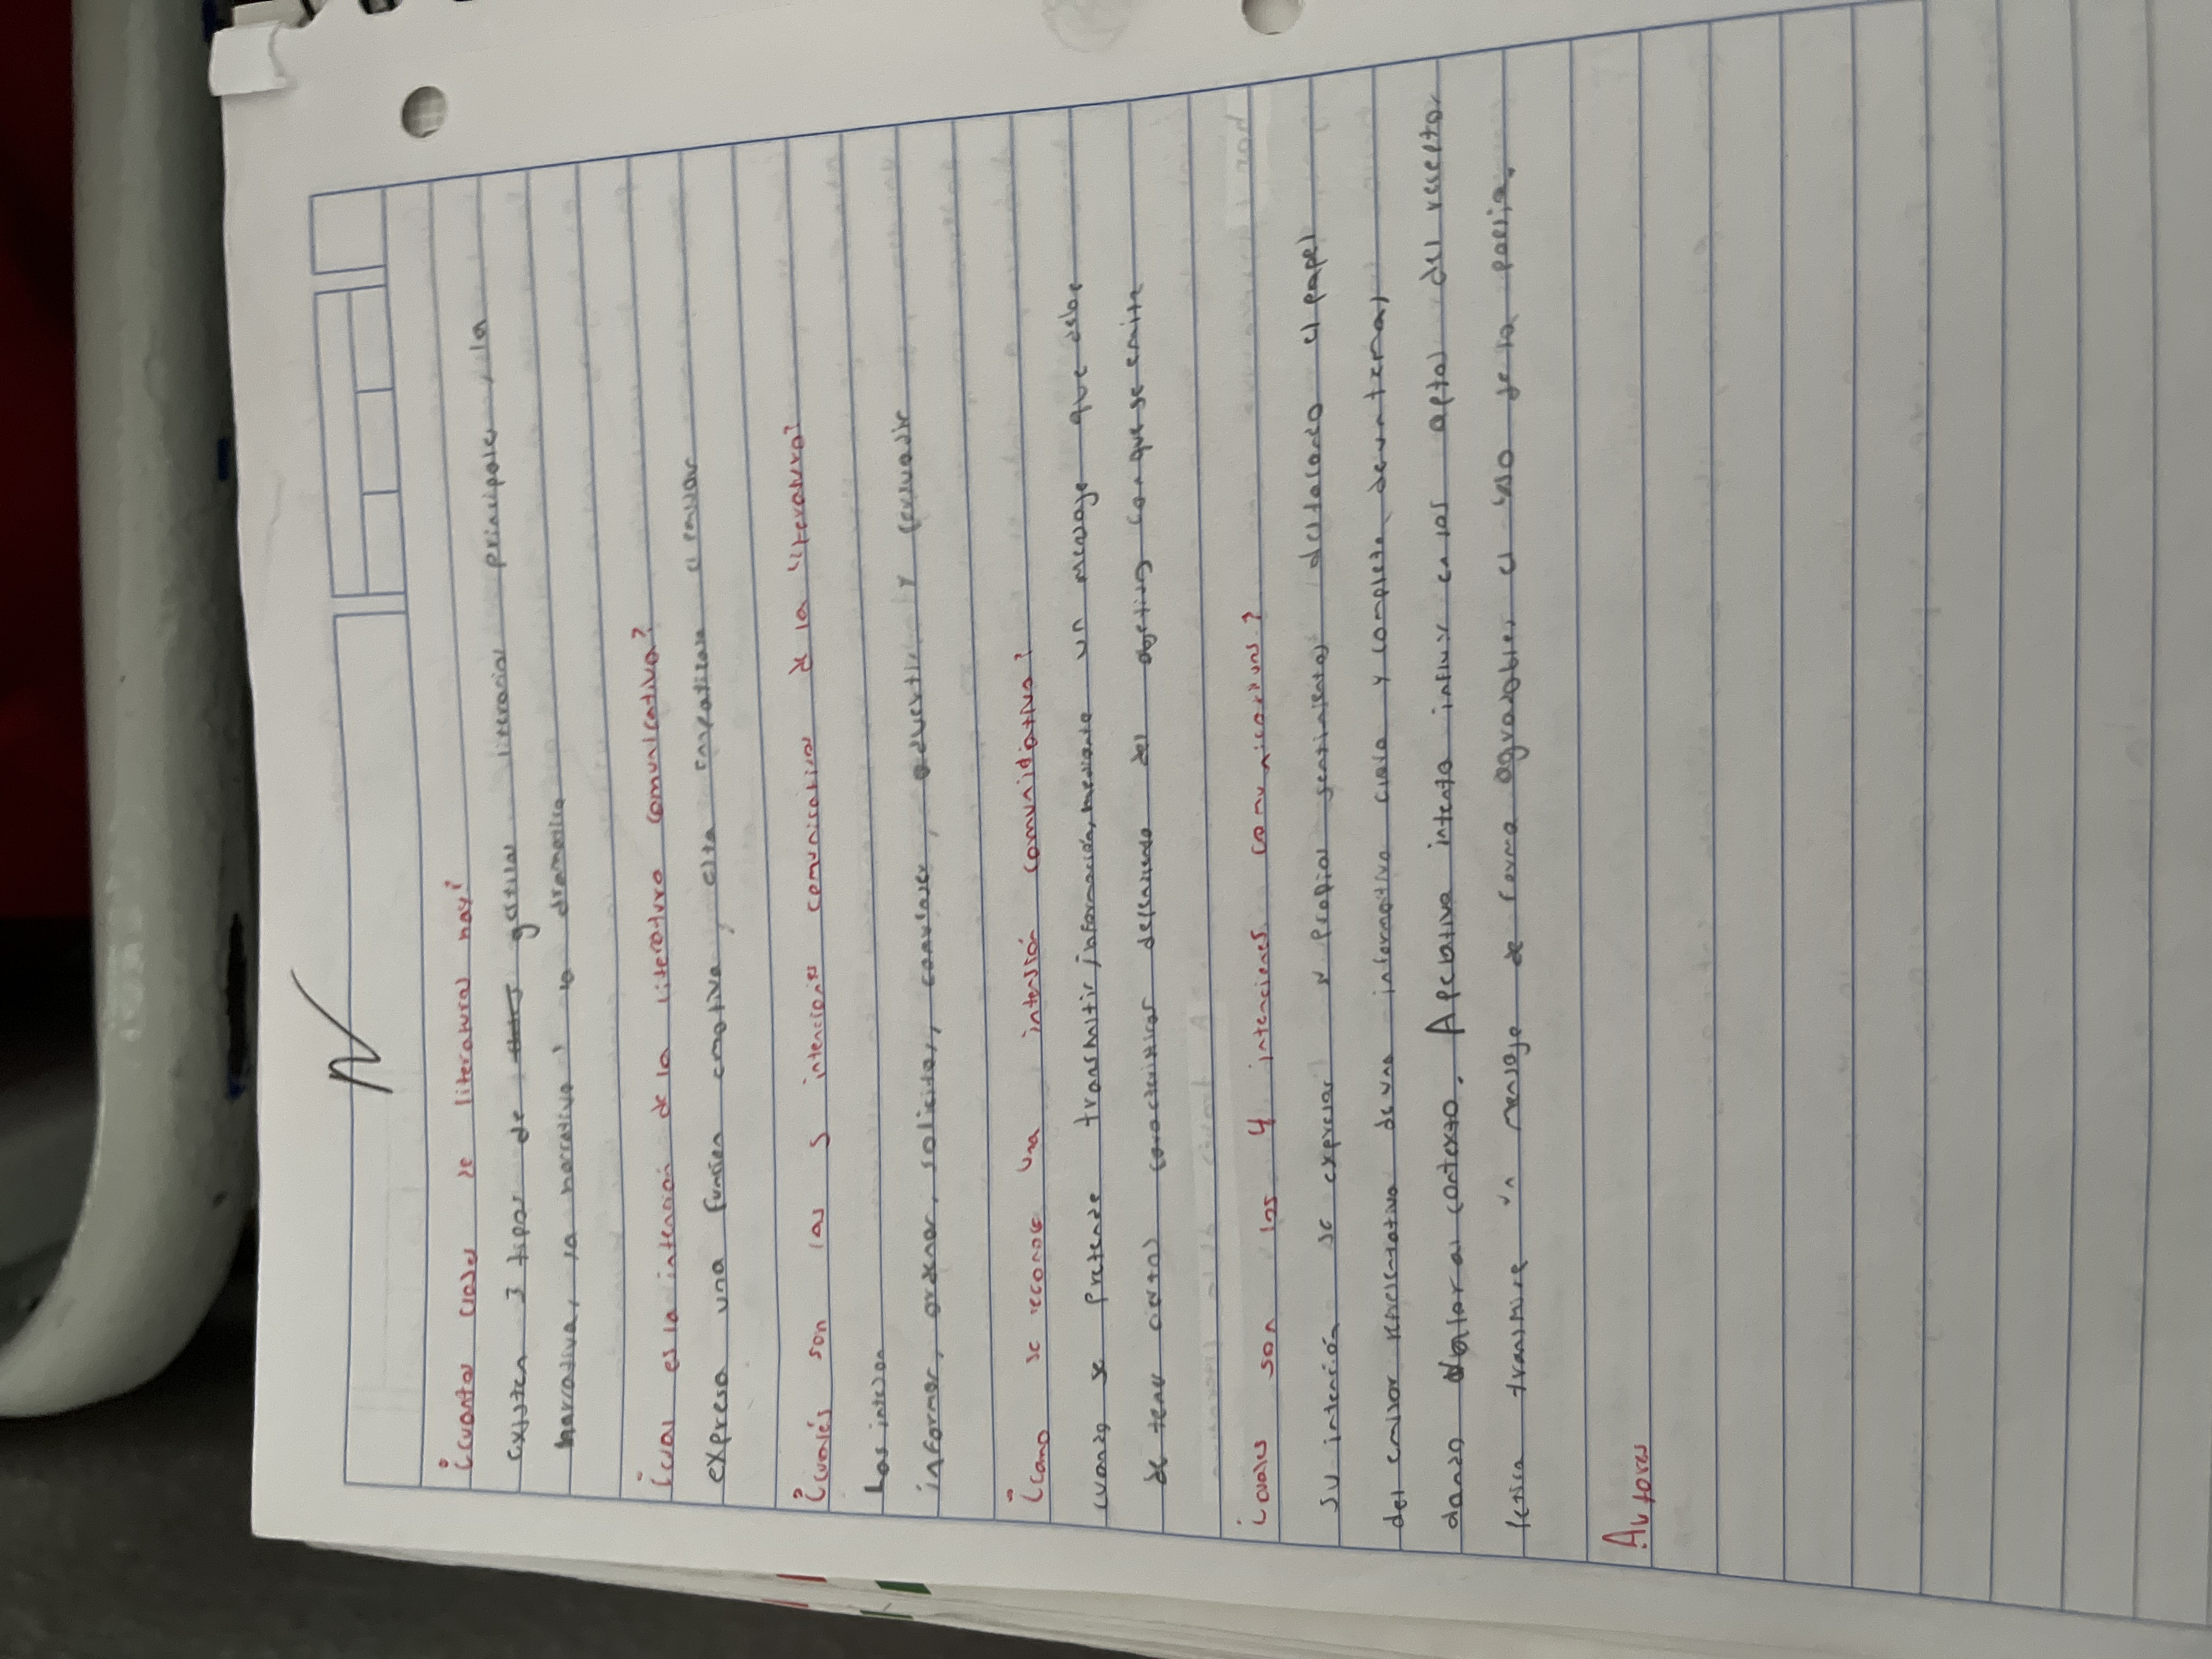 ¿cuantas clases de literaturas hay?
existen 3 tipos de literarios principales, la
narrativa, la narrativa y la dramatica
¿cual es la intención de la literatura comunicativa?
expresa una funcion emotiva, esta
¿cualés son las 5 intenciones comunicativas de la literatura?
Las
informar, ordenar, solicitar, convencer, advertir y persuadir
¿como se reconoce una intensión comunidativa?
cuando se pretende transmitir información, mediante un mensaje que debe
de tener ciertas caracteristicas del objetivo con que se emite
¿cuales son las 4 intenciones comunicativas?
su intención se expresar propios sentimientos destacando el papel
del emisor representativa de una informativa clara y completa de un tema,
dando valor al contexto. Apelativa intenta influir en los del receptor
transmite un mensaje de forma agradable, el uso de la poesia.
Autores